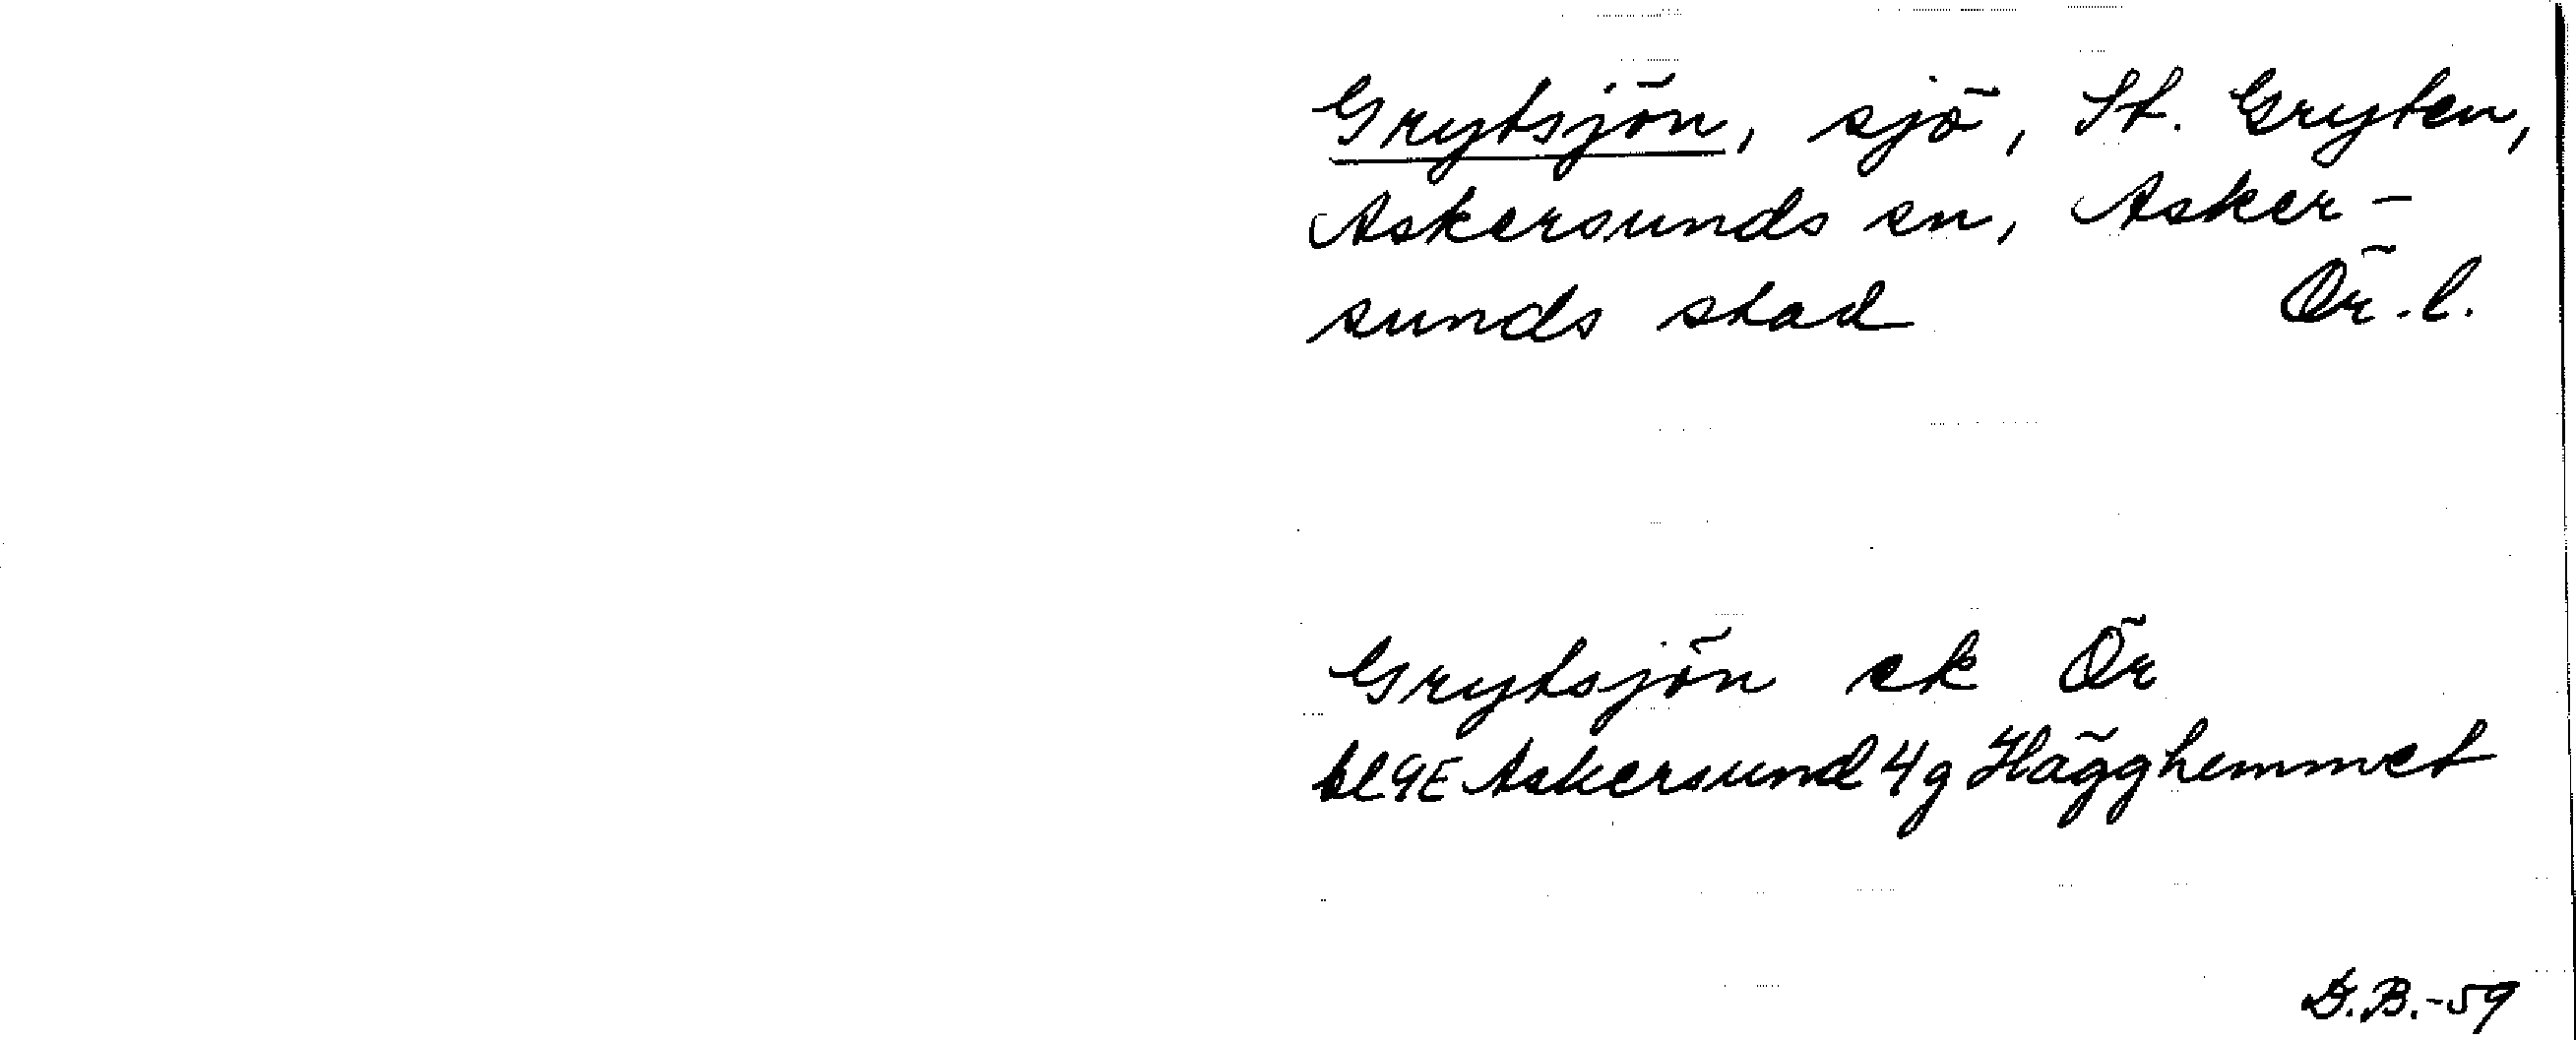 Grytsjön, sjö, St. Gryten,
Askersunds sn, Asker-
sunds stad Ör. l.
Grytsjön ek Ör
bl 9E Askersund 4g Hägghemmet
G.B.-59